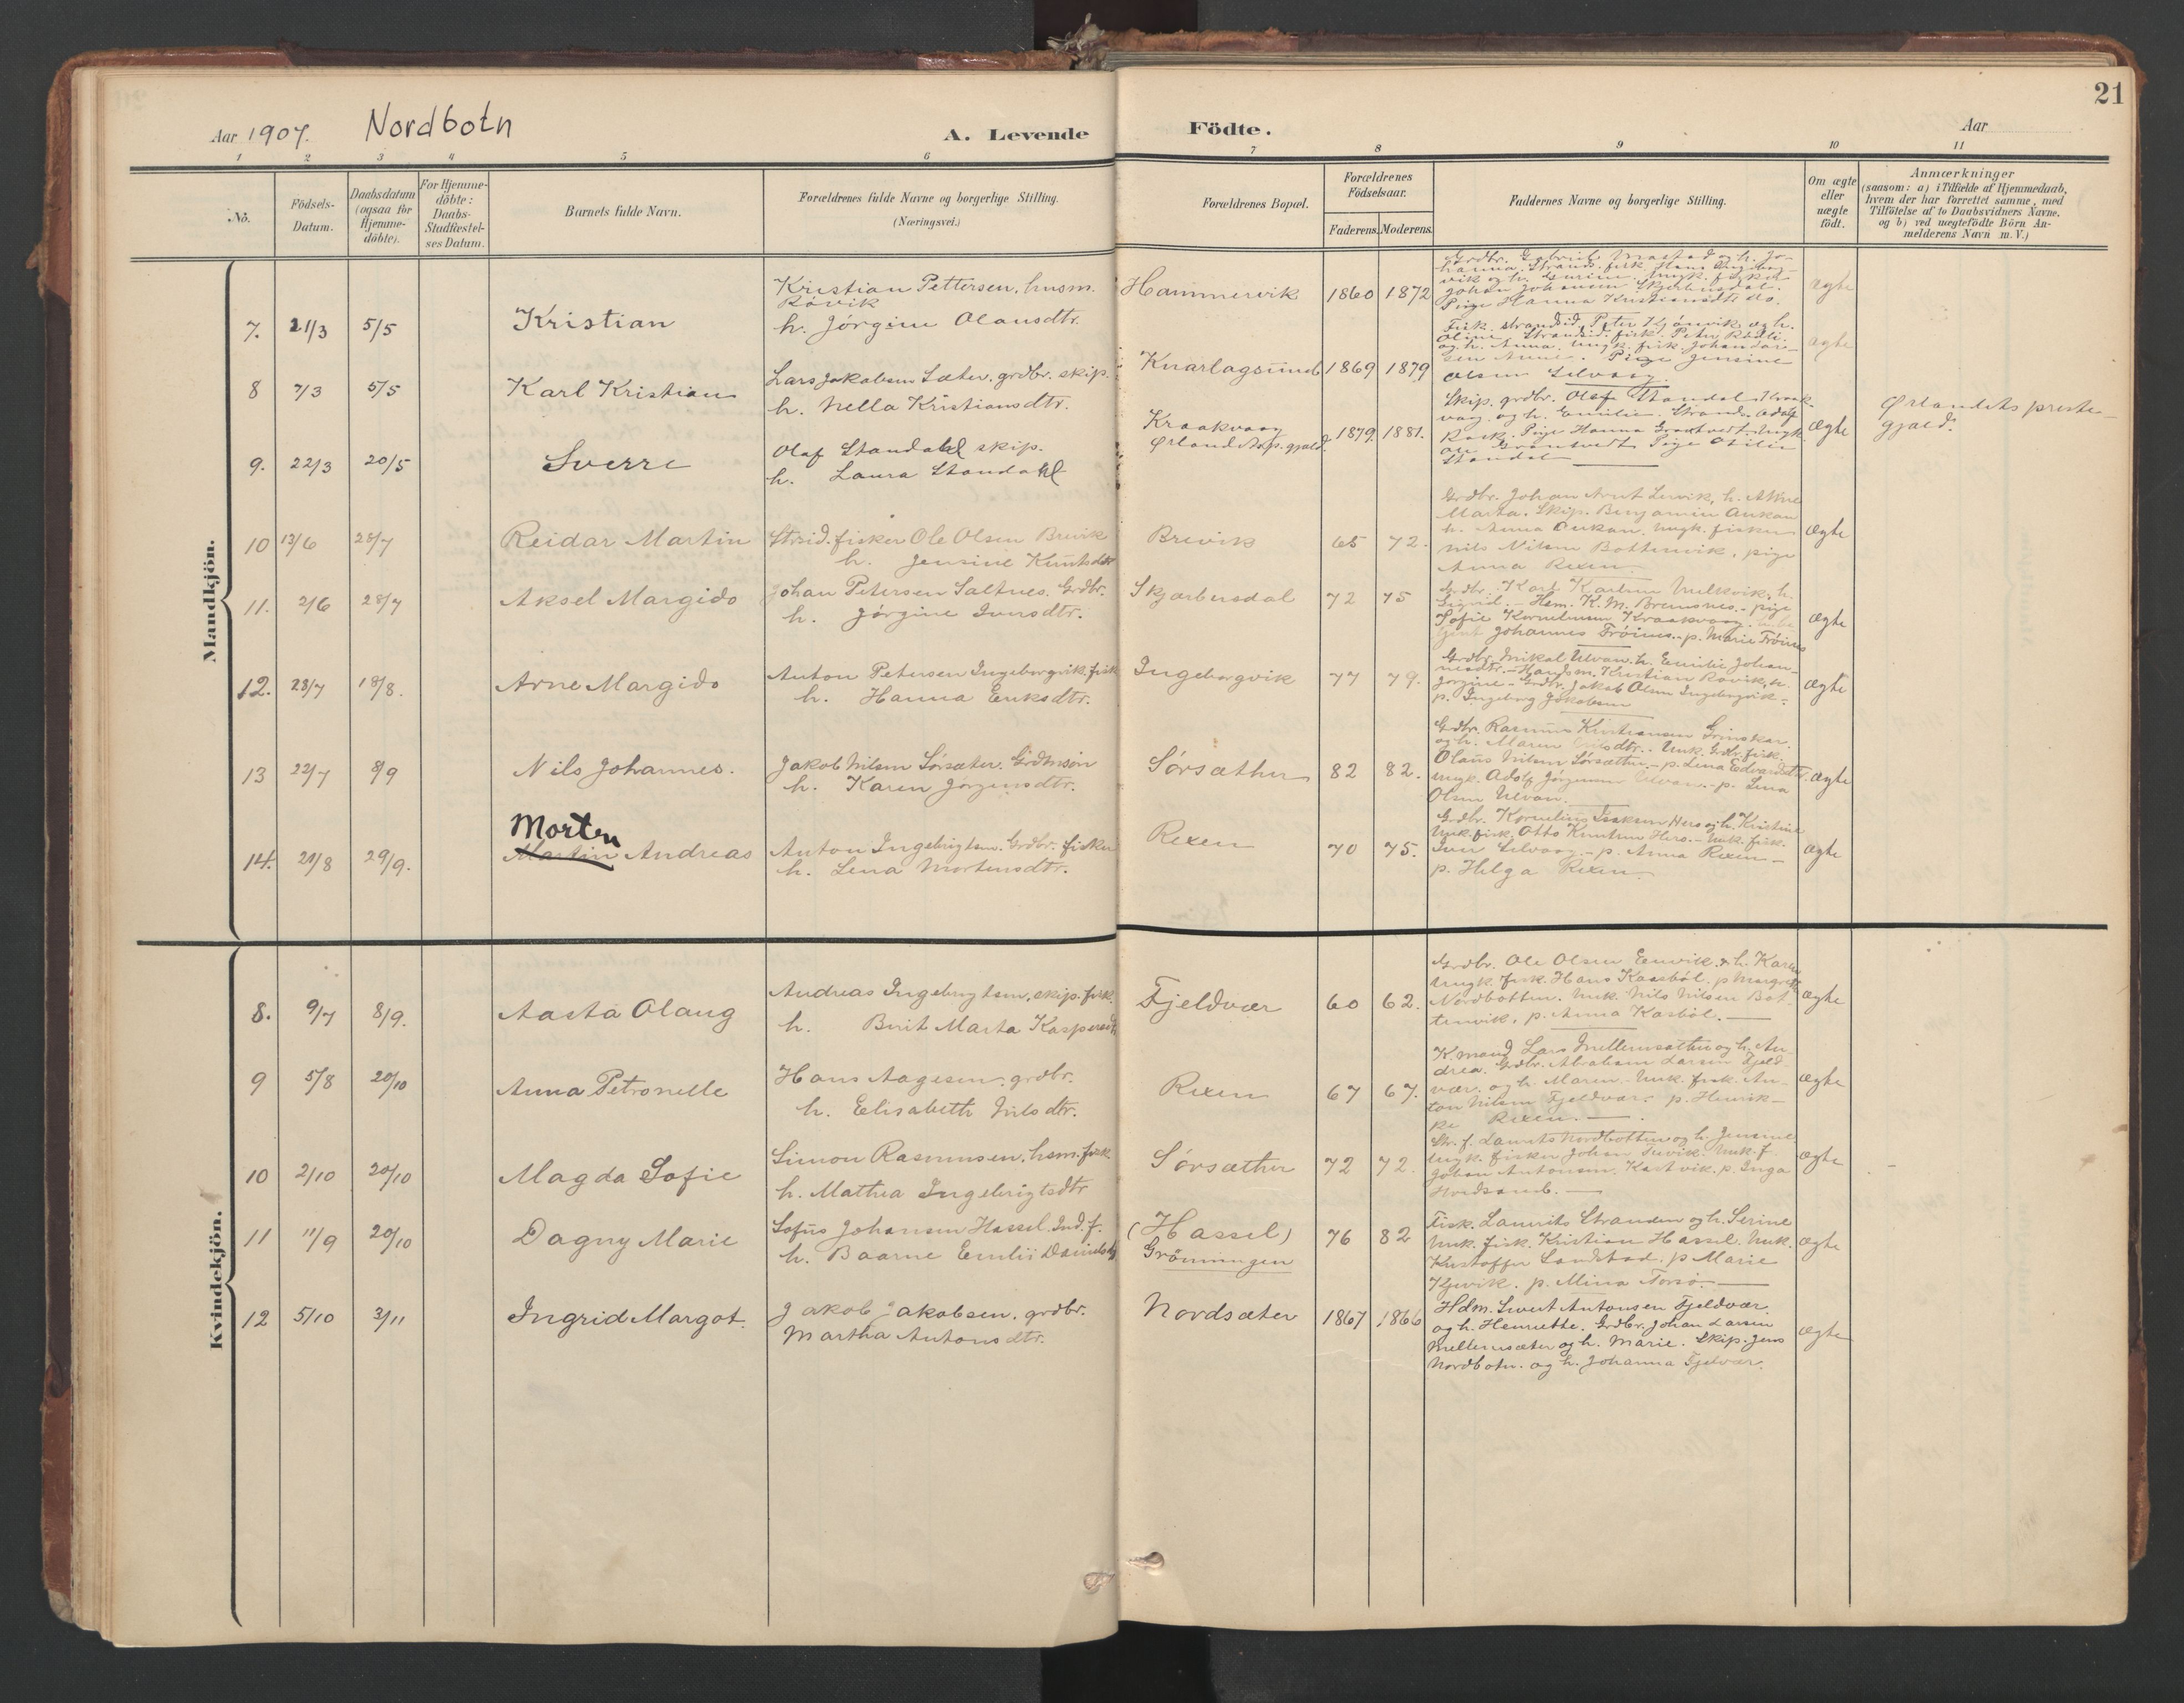 21
Aar 1907. Nordbotn A. Levende Födte. Aar
1 2 3 4 5 6 7 8 9 10 11
No.
Födsels-Datum.
Daabsdatum (ogsaa for Hjemme-döbte).
For Hjemme-döbte: Daabs-Stadfæstel-ses Datum.
Barnets fulde Navn.
Forældrenes fulde Navne og borgerlige Stilling. (Næringsvei.)
Forældrenes Bopæl.
Forældrenes Födselsaar.
Faderens. Moderens.
Faddernes Navne og borgerlige Stilling.
Om ægte eller uægte födt.
Anmærkninger
(saasom: a) i Tilfælde af Hjemmedaab,
hvem der har forrettet samme, med
Tilföielse af to Daabsvidners Navne,
og b) ved uægtefödte Börn An-
melderens Navn m. V.)
Mandkjön.
7. 21/3 5/5 Kristian
Kristian Pettersen, husm.
Rövik
h. Jörgine Olausdtr.
Hammervik 1860 1872
johan Johansen
Pige Hanna
ægte
8 7/3 5/5 Karl Kristian
Lars Jakobsen Sæter. grdbr. skip.
h. Nella Kristiansdtr.
Knarlagsund 1869 1879
Fisk. strandsid. Peter Kjönvik og h.
og h. Anna. Ungk. fisk. Johan Lar-
sen Pige Jensine
Olsen Selvaag.
ægte
9. 22/3 20/5 Sverre
Olaf Standahl skip.
h. Laura Standahl
Kraakvaag
Ørlandets p. gjæld. 1879. 1881.
Skip. grdbr. Olaf Standal Kraak-
vaag og h. Emilie. Strands. Adolf
Pige Hanna Grantvedt. Ungk.
Grantvedt Pige Otilie
Standal
ægte
Ørlandets preste-
gjæld.
10 13/6 28/7 Reidar Martin
Strsid. fisker Ole Olsen Brevik
h. Jensine Knutsdtr
Brevik 65 72.
Grdbr. Johan Arnt h. Anne
Marta. Skip. Benjamin Aukan
h. Anna Aukan. Ungk. fisker
Nils Nilsen Bottenvik, pige
Anna Rexen.
ægte
11. 2/6 28/7 Aksel Margido
Johan Petersen Saltnes. Grdbr.
h. Jörgine Iversdtr.
Skjærbersdal 72 75
Grdbr. Karl Karlsen h.
Sigrid. – Hem. K. M. Bremsnes. – pige
Sofie Kornelinsen Kraakvaag.
Johannes Fröines. – p. Marie Fröines
ægte
12. 28/7 18/8. Arne Margido
Anton Petersen Ingeborgvik, fisk
h. Hanna Eriksdtr.
Ingeborgvik 77 79.
Grdbr. Mikal Ulvan. h. Emilie Johan-
nesdtr. – Kristian Rövik, h.
Jörgine – Grdbr. Jakob Olsen Ingeborgvik –
p. Ingeborg Jakobsen
ægte
13 22/7 8/9 Nils Johannes.
Jakob Nilsen Sörsæter. Grdmsön
h. Karen Jörgensdtr.
Sörsæther 82 82.
Grdbr. Rasmus Kristiansen Grinskar.
og h. Maren Nilsdtr. – Unk. Grdbr. fisk.
Olaus Nilsen Sörsæther. – p. Lina Edvardsdtr.
ungk. Adolf Jörgensen Ulvan. – p. Lina
Olsen Ulvan.
ægte
14. 20/8 29/9. Morten
Martin Andreas
Anton Ingebrigtsen. Grdbr. fisker
h. Lena Mortensdtr.
Rexen 70 75.
Grdbr. Kornelius Isaksen Hers og h. Kristine
Unk. fisk. Otto Knutsen Hers. – Unk. fisk.
Iver Selvaag. – p. Anna Rexen –
p. Helga Rexen.
ægte
Kvindekjön.
8. 9/7 8/9. Aasta Olaug
Andreas Ingebrigtsen, skip. fisk.
h. Berit Marta Kaspersdtr
Fjeldvær 60 62.
Grdbr. Ole Olsen Envik. & h. Karen
Ungk. fisk. Hans Kaasböl. p Margrete
Nordbotten. Unk. Nils Nilsen Bot-
tenvik, p. Anna Kasböl.
ægte
9 5/8 20/10 Anna Petronelle
Hans Aagesen. grdbr.
h. Elisabeth Nilsdtr.
Rexen 67 67.
K.mand Lars Mellemsæther og h. An-
drea. Grdbr. Abraham Larsen Fjeld-
vær. og h. Maren. – Unk. fisk. An-
ton Nilsen Fjeldvær. p. Henrik-
ke Rexen.
ægte
10 2/10 20/10 Magda Sofie
Simon Rasmussen, hsm. fisk.
h. Mathea Ingebrigtsdtr
Sörsæther 72 72.
Str. f. Laurits Nordbotten og h. Jensine
ungk. fisker Johan Tuvik. Unk. f.
Johan Antonsen. Kastvik. p. Inga
ægte
11 11/9 20/10 Dagny Marie
Sofus Johansen Hassel. Ind. f.
h. Baarne Emilie Danielsdtr
(Hassel)
Grönningen 76 82
Fisk. Laurits Stranden og h. Serine
Unk. fisk. Kristian Hassel. Unk.
Kristoffer Sandstad. p Marie
Kjervik. p. Mina Torsö.
ægte
12 5/10 3/11 Ingrid Margot.
Jakob Jakobsen. grdbr.
Martha Antonsdtr.
Nordsæter 1867 1866
Hdm. Sivert Antonsen Fjeldvær.
og h. Henriette. Grdbr. Johan Larsen
Mellemsæter og h. Marie. Skip. Jens
Nordbotn. og h. Johanna Fjelvær.
ægte